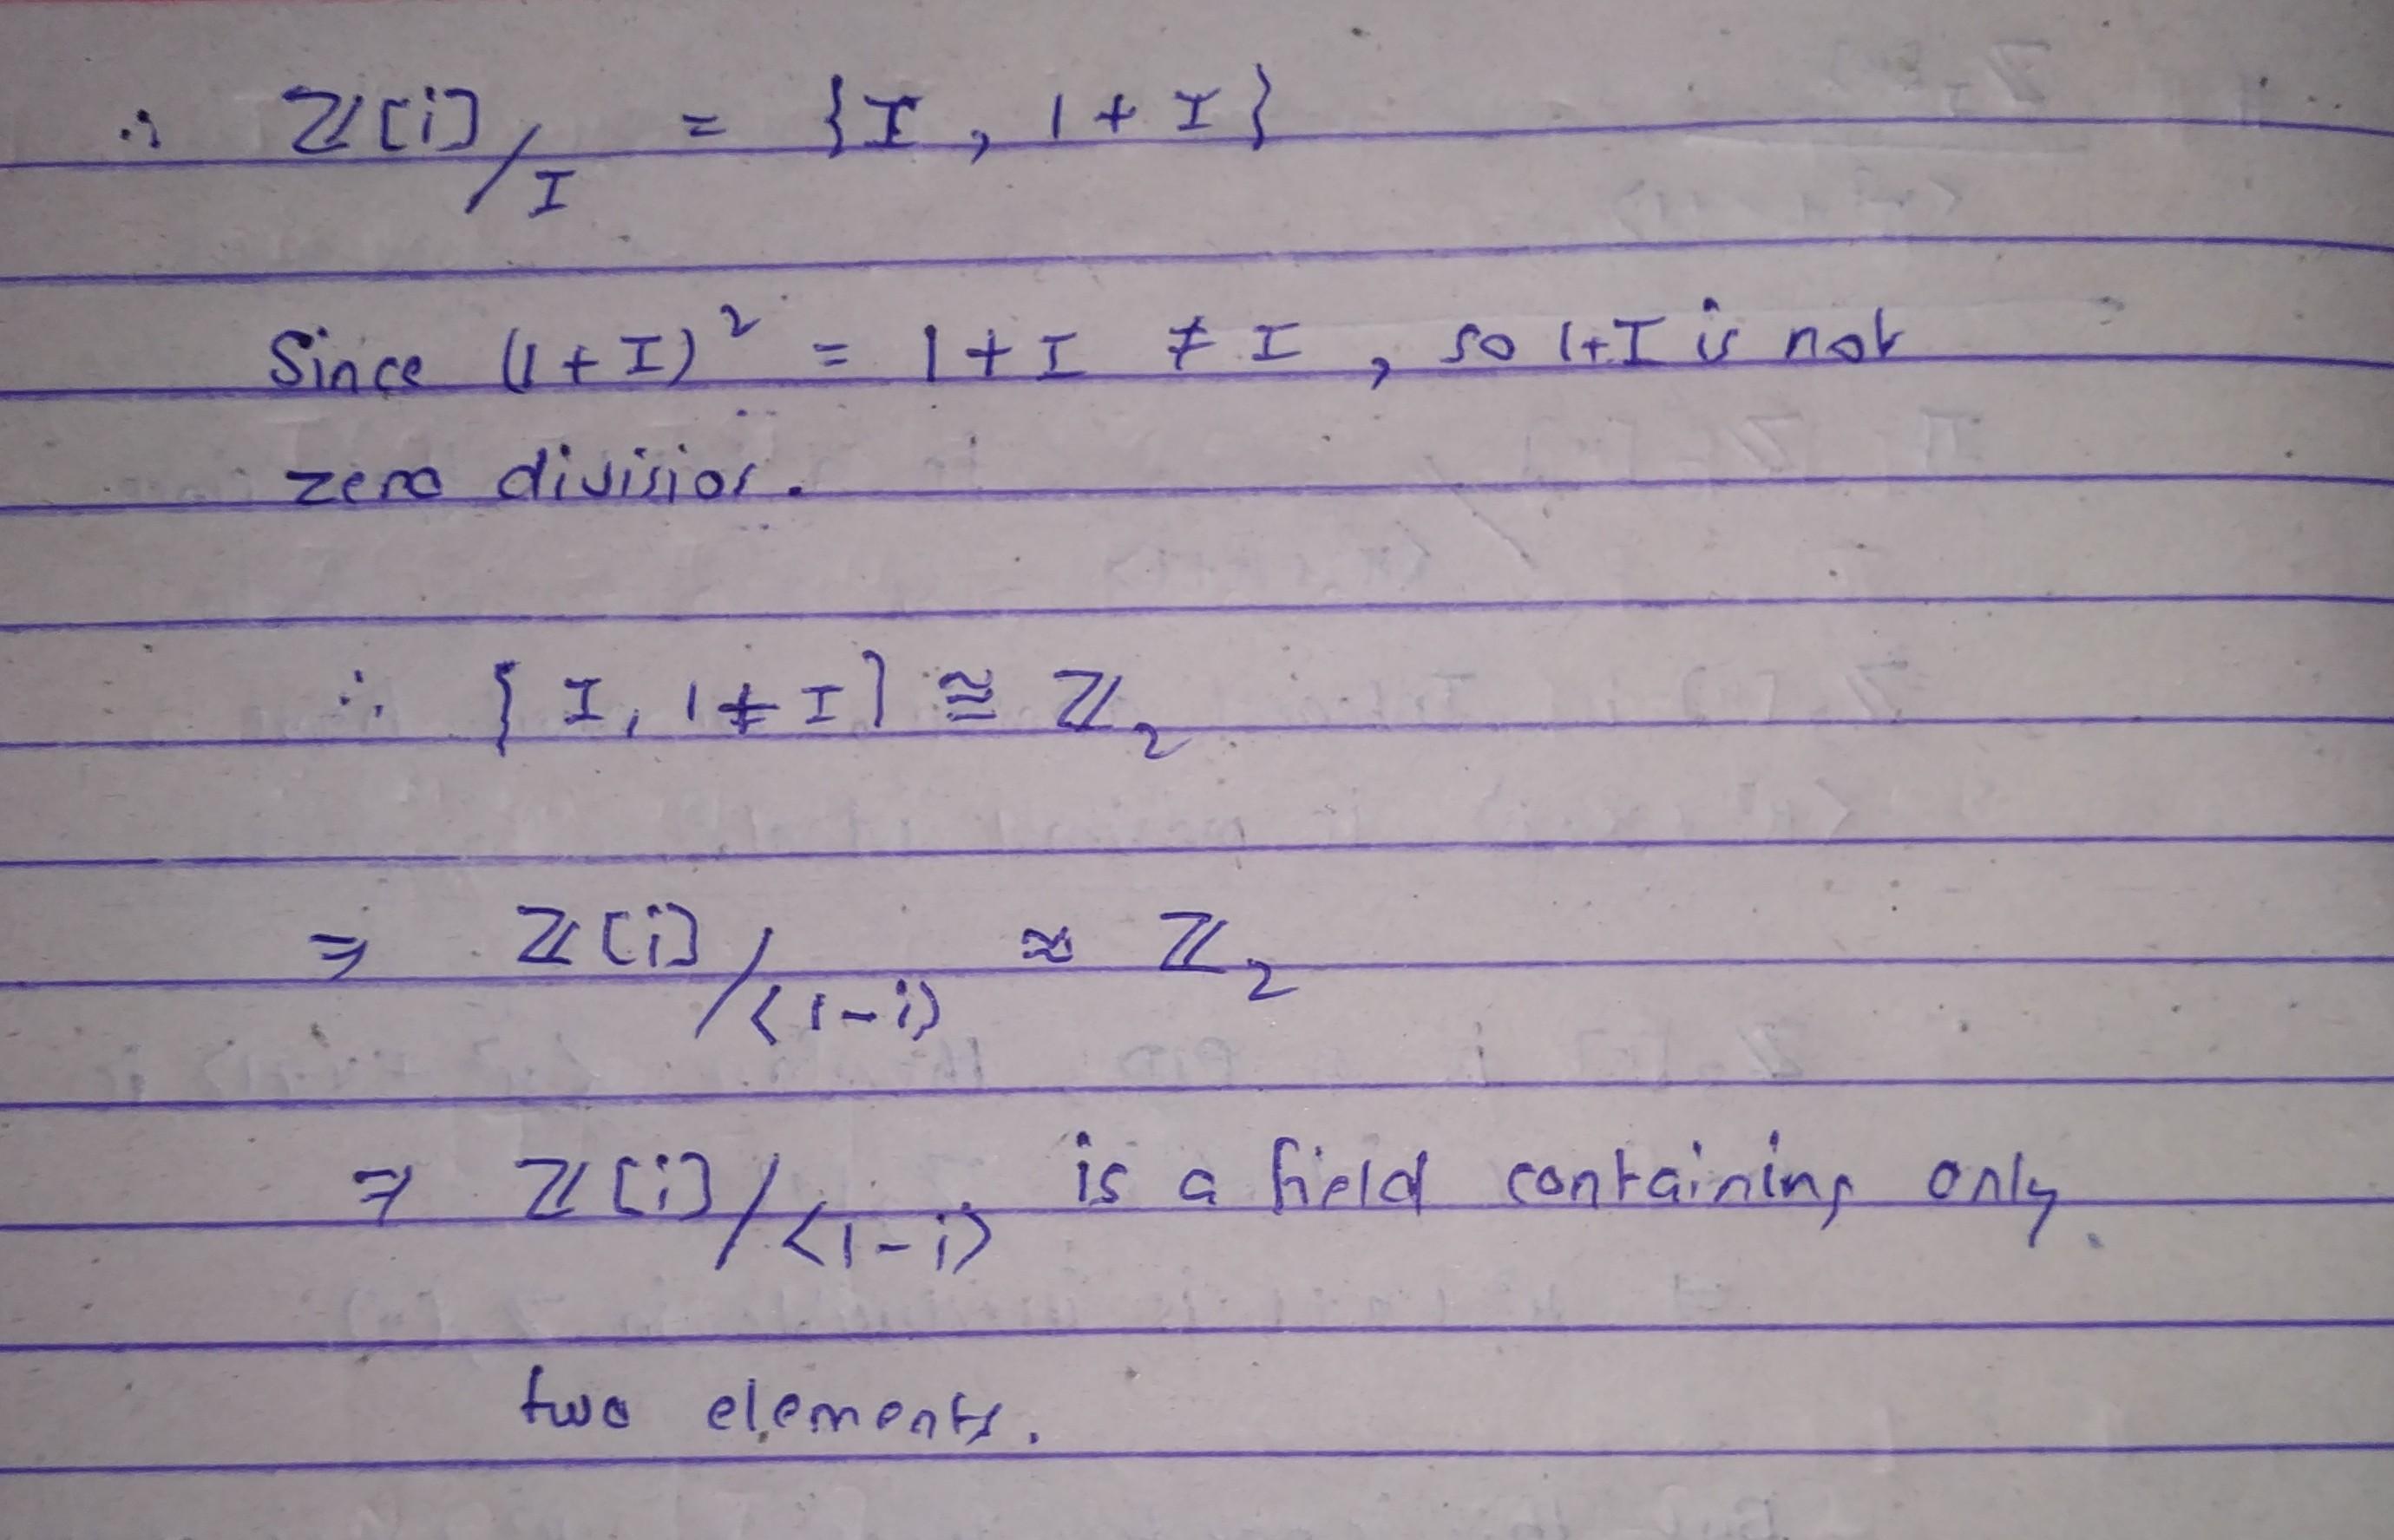 ∴ ℤ[i]/I = {I, 1+I}
Since (1+I)² = 1+I ≠ I, so 1+I is not
zero divisior.
∴ {I, 1+I} ≅ ℤ₂
⇒ ℤ[i]/⟨1-i⟩ ≈ ℤ₂
⇒ ℤ[i]/⟨1-i⟩ is a field containing only
two elements.